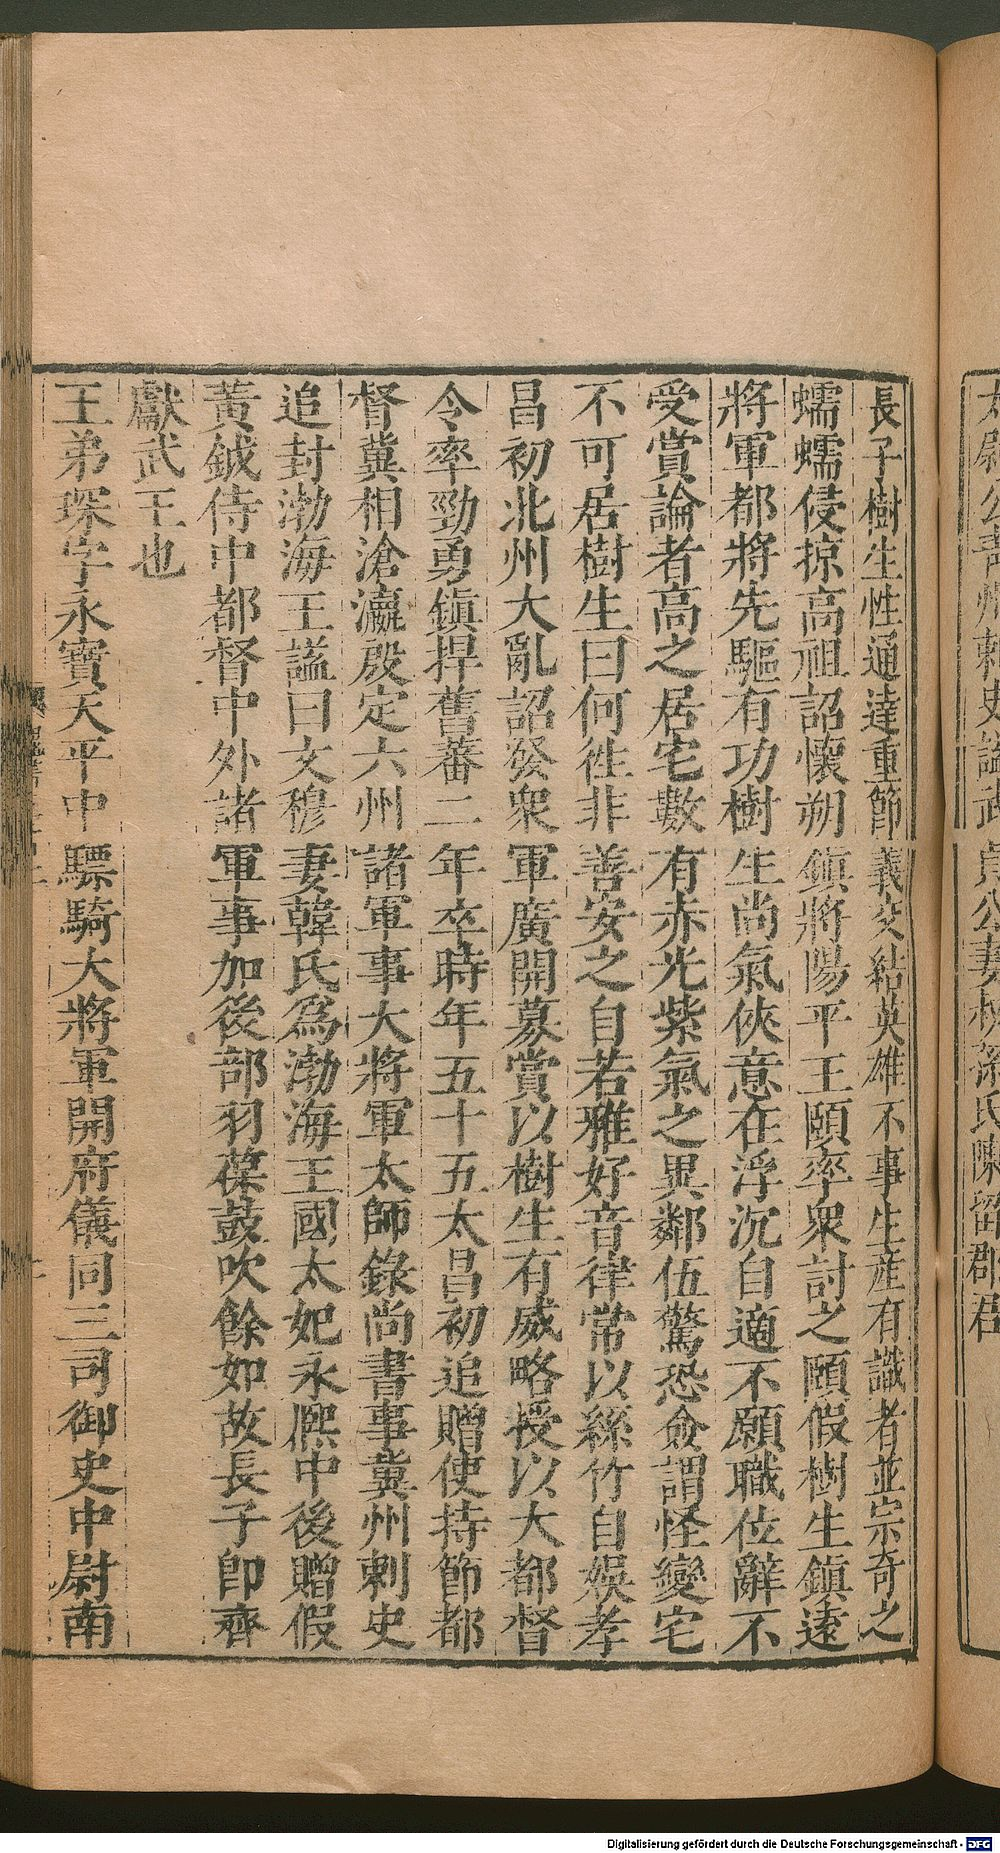 太尉公青州刺史諡武貞公妻　氏陳留郡君
長子樹生性通達重節義交結英雄不事生產有識者並宗奇之
蠕蠕侵掠高祖詔懷朔鎮將陽平王頤率眾討之頤假樹生鎮遠
將軍都將先驅有功樹生尚氣俠意在浮沉自適不願職位辭不
受賞論者高之居宅數有赤光紫氣之異鄰伍驚恐僉謂怪變宅
不可居樹生曰何徃非善安之自若雅好音律常以絲竹自娛孝
昌初北州大亂詔發眾軍廣開募賞以樹生有威略授以大都督
令率勁勇鎮捍舊蕃二年卒時年五十五太昌初追贈使持節都
督冀相滄瀛殷定六州諸軍事大將軍太師錄尚書事冀州刺史
追封渤海王謚曰文穆妻韓氏爲渤海王國太妃永熈中後贈假
黃鉞侍中都督中外諸軍事加後部羽葆鼓吹餘如故長子即齊
獻武王也
王弟琛字永寶天平中驃騎大將軍開府儀同三司御史中尉南
Digitalisierung gefördert durch die Deutsche Forschungsgemeinschaft - DFG